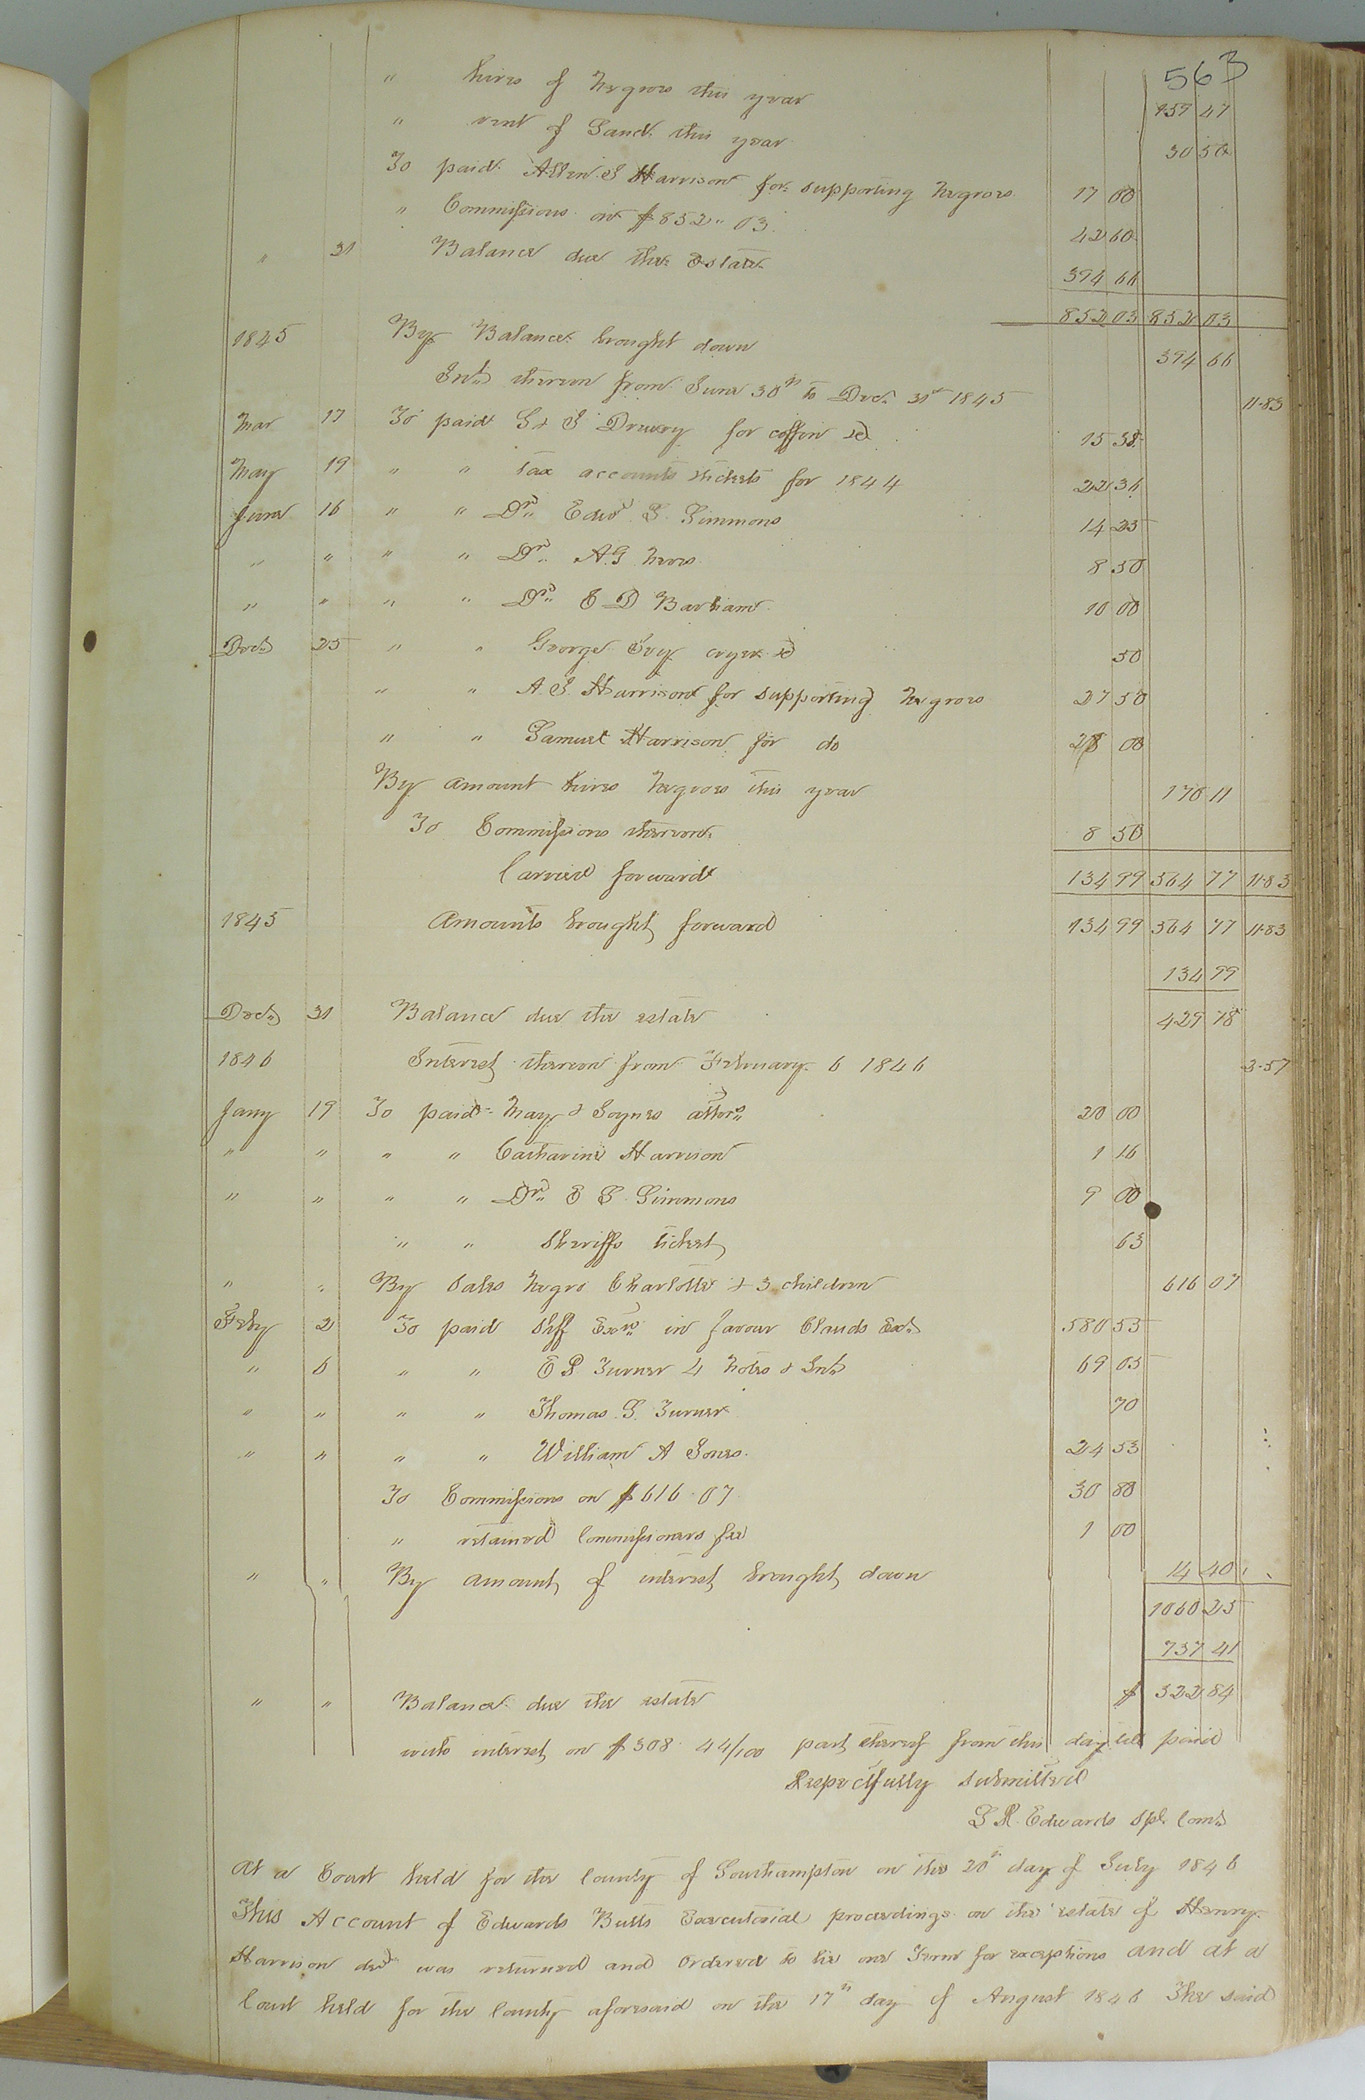 563
" hires of Negroes this year 159 47
" rent of Land this year 30 50
To paid A S Harrison for supporting Negroes 17 00
" Commissions on $852.. 03 42 60
" 31 Balance due the Estate 394 66
852 03 852 03
1845 By Balance brought down 394 66
Int thereon from June 30th to Dec 31st 1845 11.83
Mar 17 To paid & S Drewry for coffin &c 15 38
May 19 " " tax accounts tickets for 1844 22 36
June 16 " " Dr Edwd Simmons 14 25
" " " " Dr A.G 8 50
" " " " Dr E D Barham 10 00
Dec 25 " " George Ivy cryer &c 50
" " A. S. Harrison for supporting Negroes 27 50
" " Samuel Harrison for do 28 00
By amount hires Negroes this year 170 11
To Commissions thereon 8 50
Carried forward 134 99 564 77 11.83
1845 Amounts brought forward 134 99 564 77 11.83
134 99
Dec 31 Balance due the estate 429 78
1846 Interest thereon from February 6 1846 3.57
Jany 19 To paid May & attos 20 00
" " " " Catharine Harrison 1 16
" " " " Dr E Simmons 9 00
" " Sheriffs ticket 63
" " By Sales Negro Charlotte & 3 children 616 07
Feby 2 To paid Shff Exon in favour Clauds Exor 580 53
" 6 " " E P Turner 4 Notes & Int 69 05
" " " " Thomas Turner 70
" " " " William A Jones 24 53
To Commissions on $616.07 30 80
" retained Commissioners fee 1 00
" " By amount of interest brought down 14 40
1060 25
737 41
" " Balance due the estate $ 322 84
with interest on $308. 44/100 part thereof from this day till paid
Respectfully submitted
Edwards Spl Com
At a Court held for the County of Southampton on the 20th day of July 1846
This Account of Edwards Butts Executorial proceedings on the estate of Henry
Harrison decd was returned and Ordered to lie one Term for exceptions and at a
Court held for the County aforesaid on the 17th day of August 1846 The said